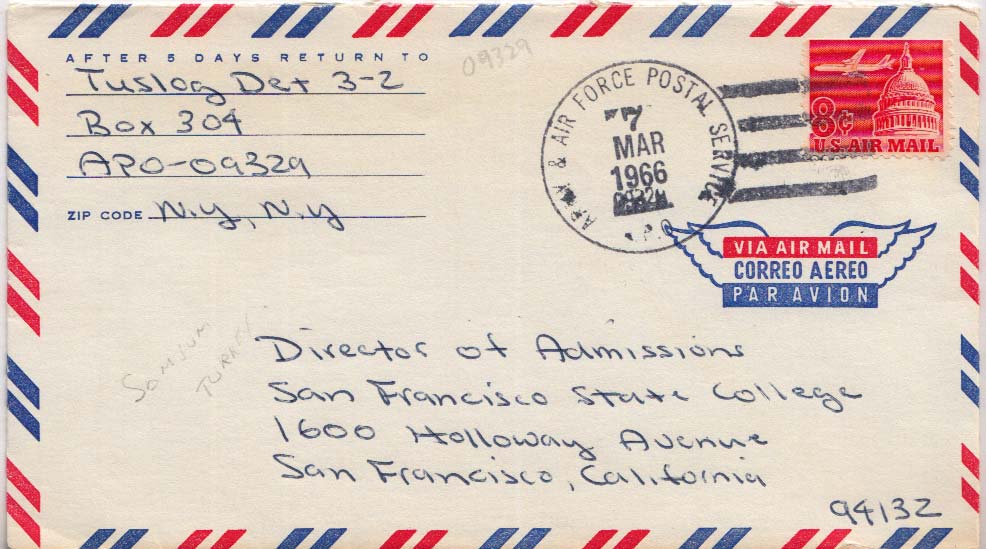 AFTER 5 DAYS RETURN TO
Tuslog Det 3-2
Box 304
APO-09329
ZIP CODE N.Y, N.Y
09329
ARMY & AIR FORCE POSTAL SERVICE
7
MAR
1966
A.P.O
8¢
U.S. AIR MAIL
VIA AIR MAIL
CORREO AEREO
PAR AVION
SOMSUM
TURKEY
Director of Admissions
San Francisco State College
1600 Holloway Avenue
San Francisco, California
94132